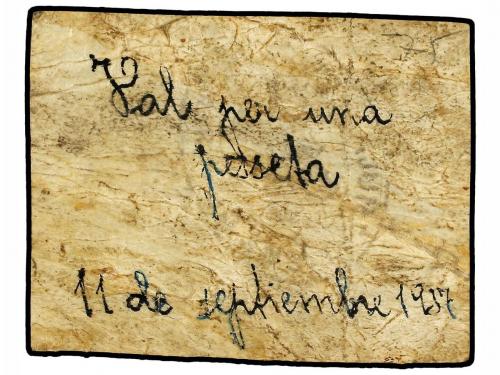 75
Val per una
pesseta
11 de septiembre 1937